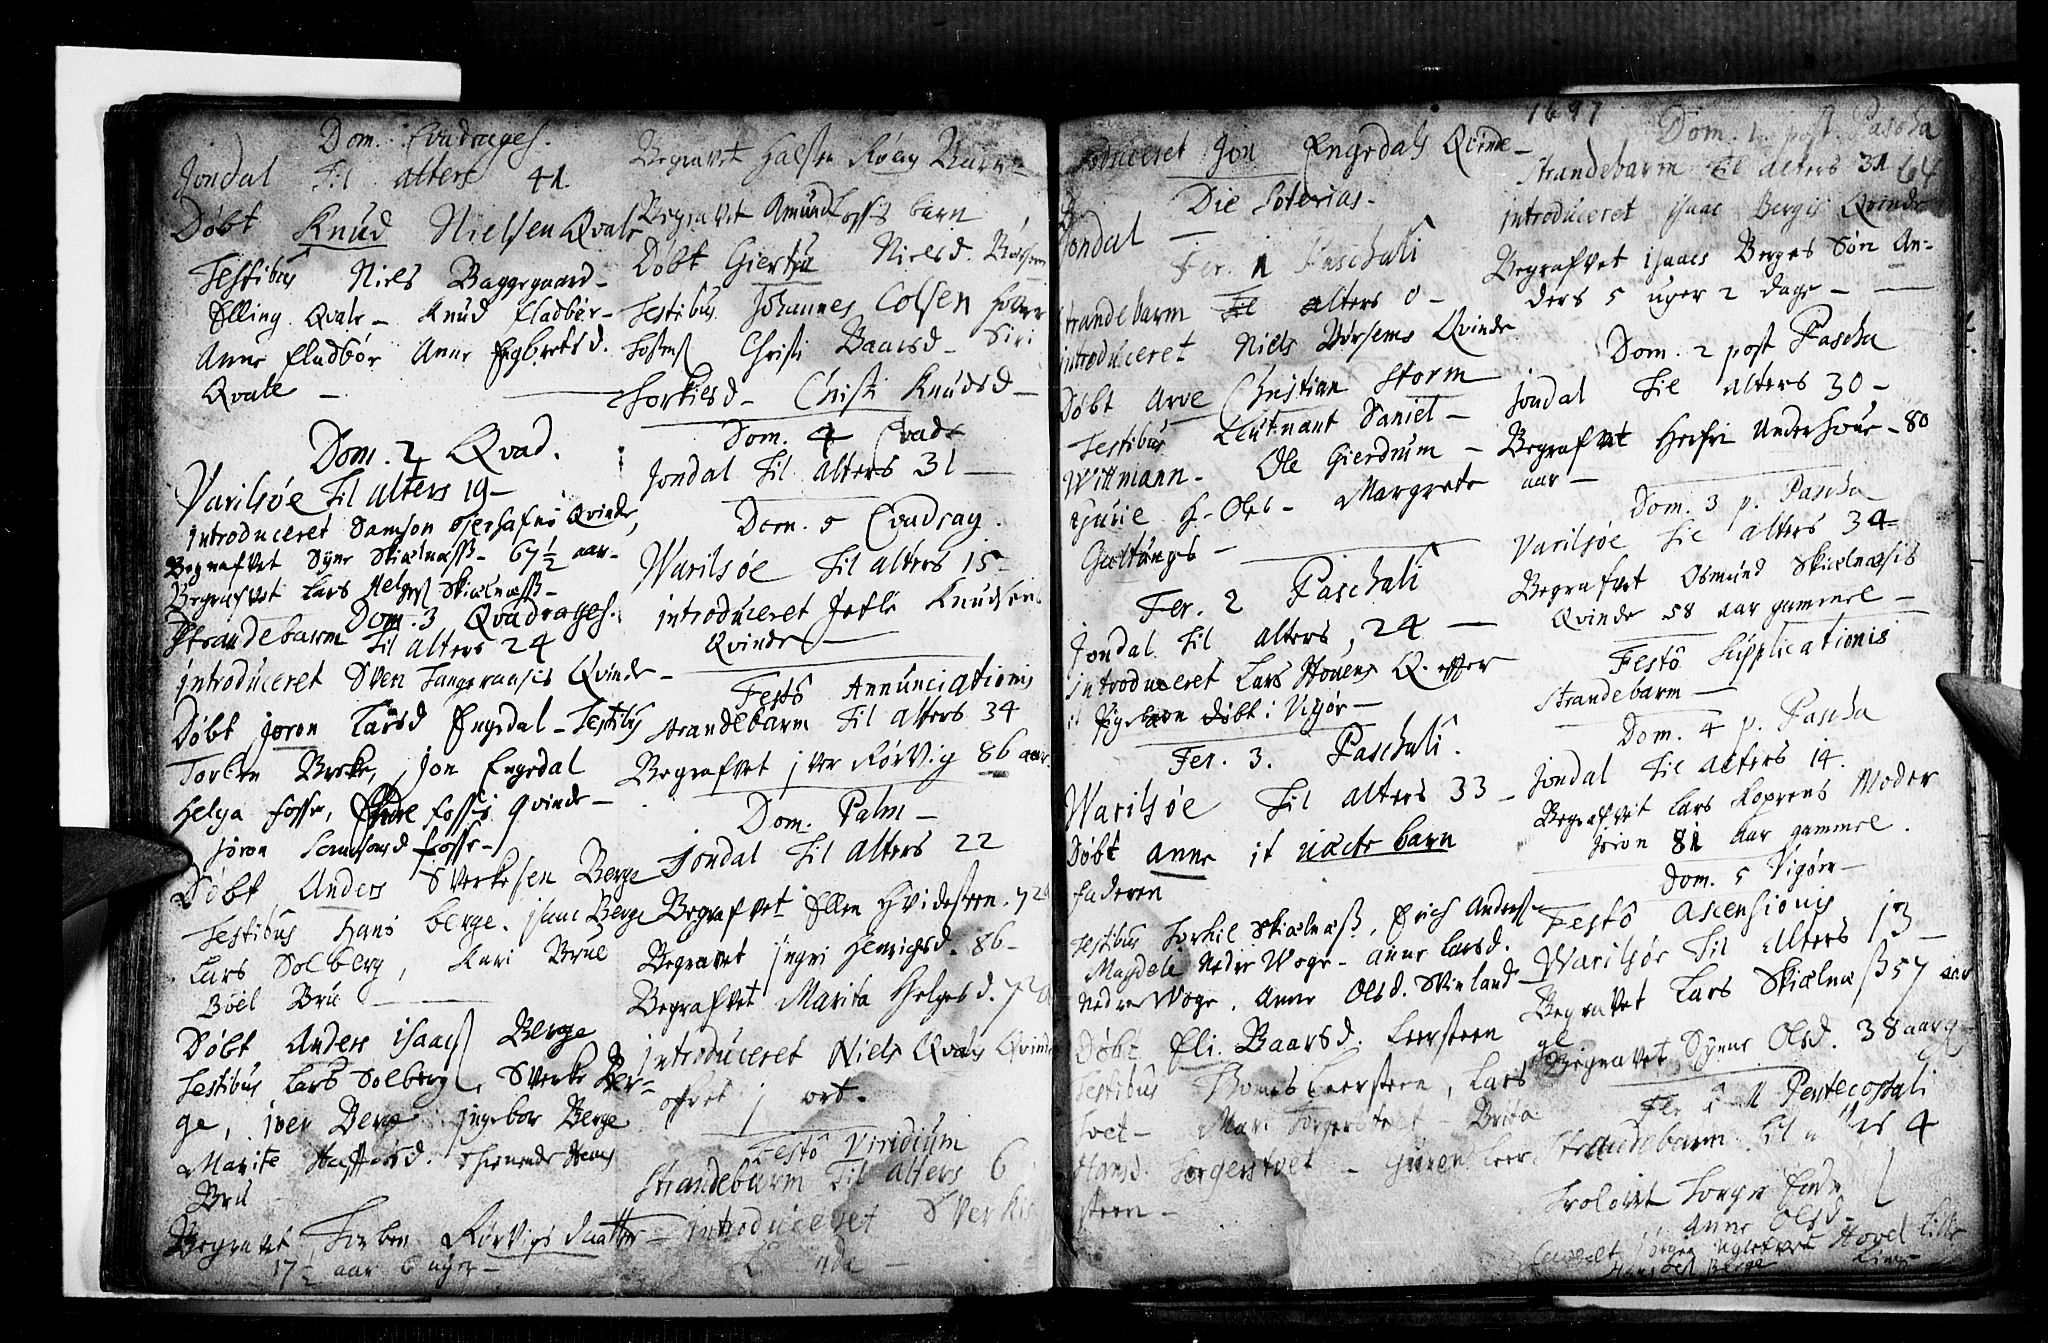 Dom. Qvadrages.
Jondal til alters 41
Døbt Knud Nielsen Qvale
Testibus Niels Baggegaard
Elling Qvale - Knud Fladbør -
Anne Fladbør Anne Engbretsd.
Qvale -
Dom. 2 Qvad.
Varilsøe til alters 19 -
introduceret Samson Qvinde,
Begrafvet Syne Skielnæss - 67½ aar -
Begrafvet Lars Skielnæss -
Dom. 3 Qvadrages.
Strandebarm til alters 24
introduceret Sven Tangeraasis Qvinde -
Døbt Joron Larsd Engedal - Testibus
Torben Breke, Jon Engedal
Helga Fosse, Fosses qvinde -
Joron Samsonsd Fosse -
Døbt Anders Sverkesen Berge
Testibus Hans berge. isaac Berge
Lars Solberg, Kari Brue
Böel Bru -
Døbt Anders isaacs Berge
Testibus Lars Solberg, Sverke Ber-
ge, iver Berge ingebor Berge
Marite thienende Hans
Bru
Begravet Torben Rørvigs daatter -
17½ aar 6 uger -
Begravet Halsten Røen Barn
Begravet Amund Fosses barn
Døbt Giertru Nielsd. Børsem
Testibus Johannes Colsen
Christi Baarsd - Siri
Torkilsd - Christi Knudsd -
Dom. 4 Qvad
Jondal til alters 31 -
Dom. 5 Qvadrag.
Warilsøe til alters 15 -
introduceret Jetle Knudsen
Qvinde -
Festo Annunciationis
Strandebarm til alters 34
Begrafvet iver Rørvig 86 aar
Dom. Palm -
Jondal til alters 22
Begrafvet Ellen Hvidesteen. 72
Begravet ingri Henrichsd. 86 -
Begrafvet Marita Helgesd. 72
introduceret Niels Qvales Qvinde
ofret j ort.
Festo Viridium
Strandebarm til alters 6
introduceret Sverkis
1697
64
introduceret Jon Engedals Qvinde -
Die Soterias -
Jondal -
Fer. 1 Paschali
Strandebarm til alters 0 -
introduceret Niels Børsems Qvinde
Døbt Arve Christian Storm
Testibus Leutnant Daniel -
Wittmann - Ole Gierdrum -
Gurie H- Oles - Margrete
Galtungs -
Fer. 2 Paschali
Jondal til alters, 24 -
introduceret Lars Stouens Q. effter
it Pigebarn døbt i Vigør -
Fer. 3. Paschali.
Warilsøe til alters 33 -
Døbt Anne it uæcte barn
faderen
Testibus Torkil Skielnæss, Erich Anders
Magdele Nedre Woge - Anne Larsd.
Nedre Woge, Anne Olsd. Vinland -
Døbt Eli Baarsd. Leersteen
Testibus Leersteen, Lars
Tvet - Mari Torgerstvet - Brita
Hansd. Torgerstvet - Leer
steen -
Dom. 1. post Pascha
Strandebarm til alters 31
introduceret isaac Berges Qvinde
Begrafvet isaacs Berges Søn An-
ders 5 uger 2 dage -
Dom. 2 post Pascha
Jondal til alters 30 -
Begrafvet Underhoue - 80
aar -
Dom. 3 p. Pascha
Varilsøe til alters 34 -
Begrafvet Osmund Skielnæsis
Qvinde 58 aar gammel -
Festo Supplicationis
Strandebarm -
Dom. 4 p. Pascha
Jondal til alters 14.
Begrafvet Lars Koprens Moder
81 Aar gammel.
Dom. 5 Vigør -
Festo Ascensionis
Warilsøe til alters 13 -
Begravet Lars Skielnæss 57 aar
gl
Begravet Synne Olsd. 38 aar g
Fer 1 Pentecostali
Strandebarm til alters 4
Trolovet
Anne Olsd -
Berge